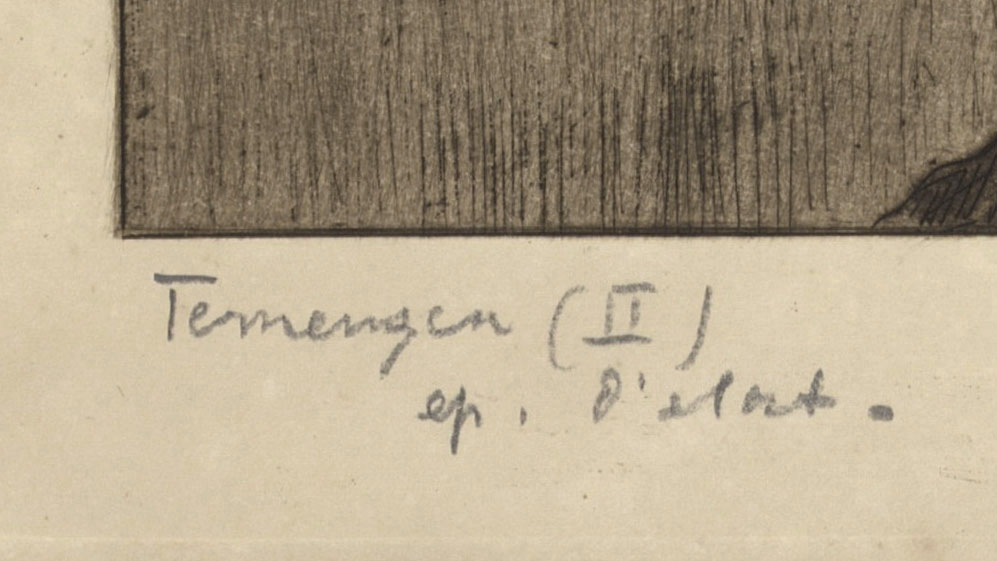 Temengen (II)
ep. d'etat.